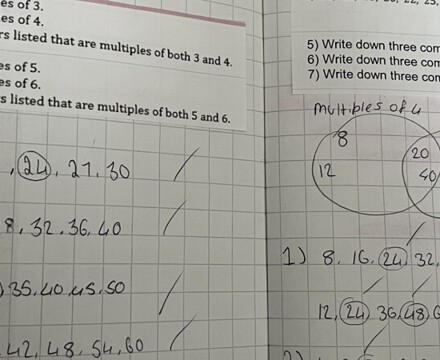 es of 3.
es of 4.
rs listed that are multiples of both 3 and 4.
es of 5.
es of 6.
s listed that are multiples of both 5 and 6.
, 24, 27, 30
8, 32, 36, 40
35, 40, 45, 50
, 42, 48, 54, 60
5) Write down three com
6) Write down three com
7) Write down three com
Multiples of 4
8
12
20
40
1) 8, 16, 24, 32,
12, 24, 36, 48,